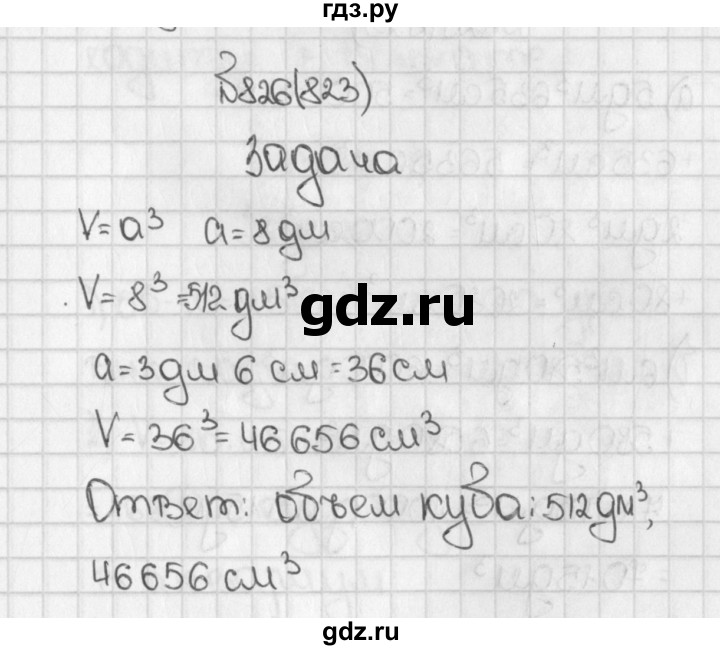 гдз.ру
№826(823)
Задача
V=a³ a=8дм
V=8³=512дм³
gdz.ru
a=3дм 6 см=36см
V=36³=46656см³
Ответ: объем куба: 512дм³,
46656см³
gdz.ru